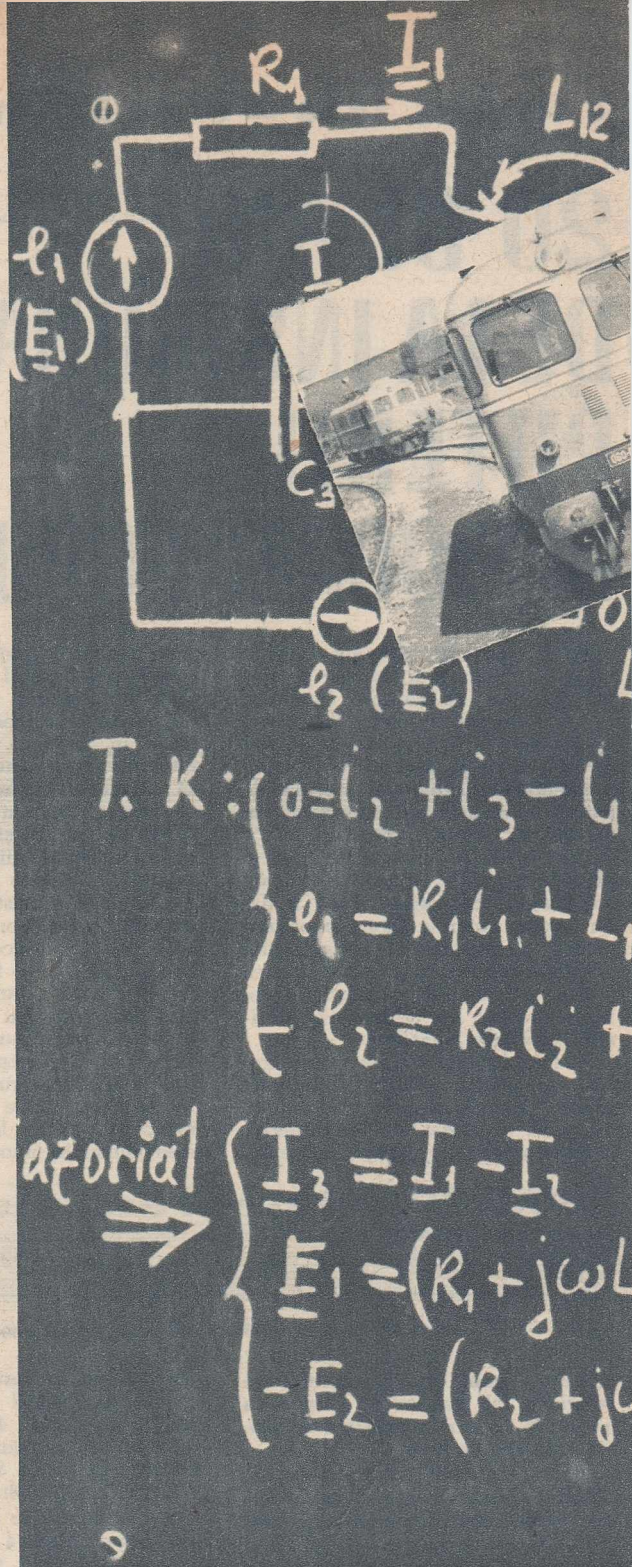 R₁ I₁
L₁₂
e₁
(E₁)
I
C₃
e₂ (E₂)
T. K: 0 = i₂ + i₃ - i₁
e₁ = R₁i₁ + L₁
- e₂ = R₂i₂ +
fazorial
⇒ I₃ = I₁ - I₂
E₁ = (R₁ + jωL
- E₂ = (R₂ + jω